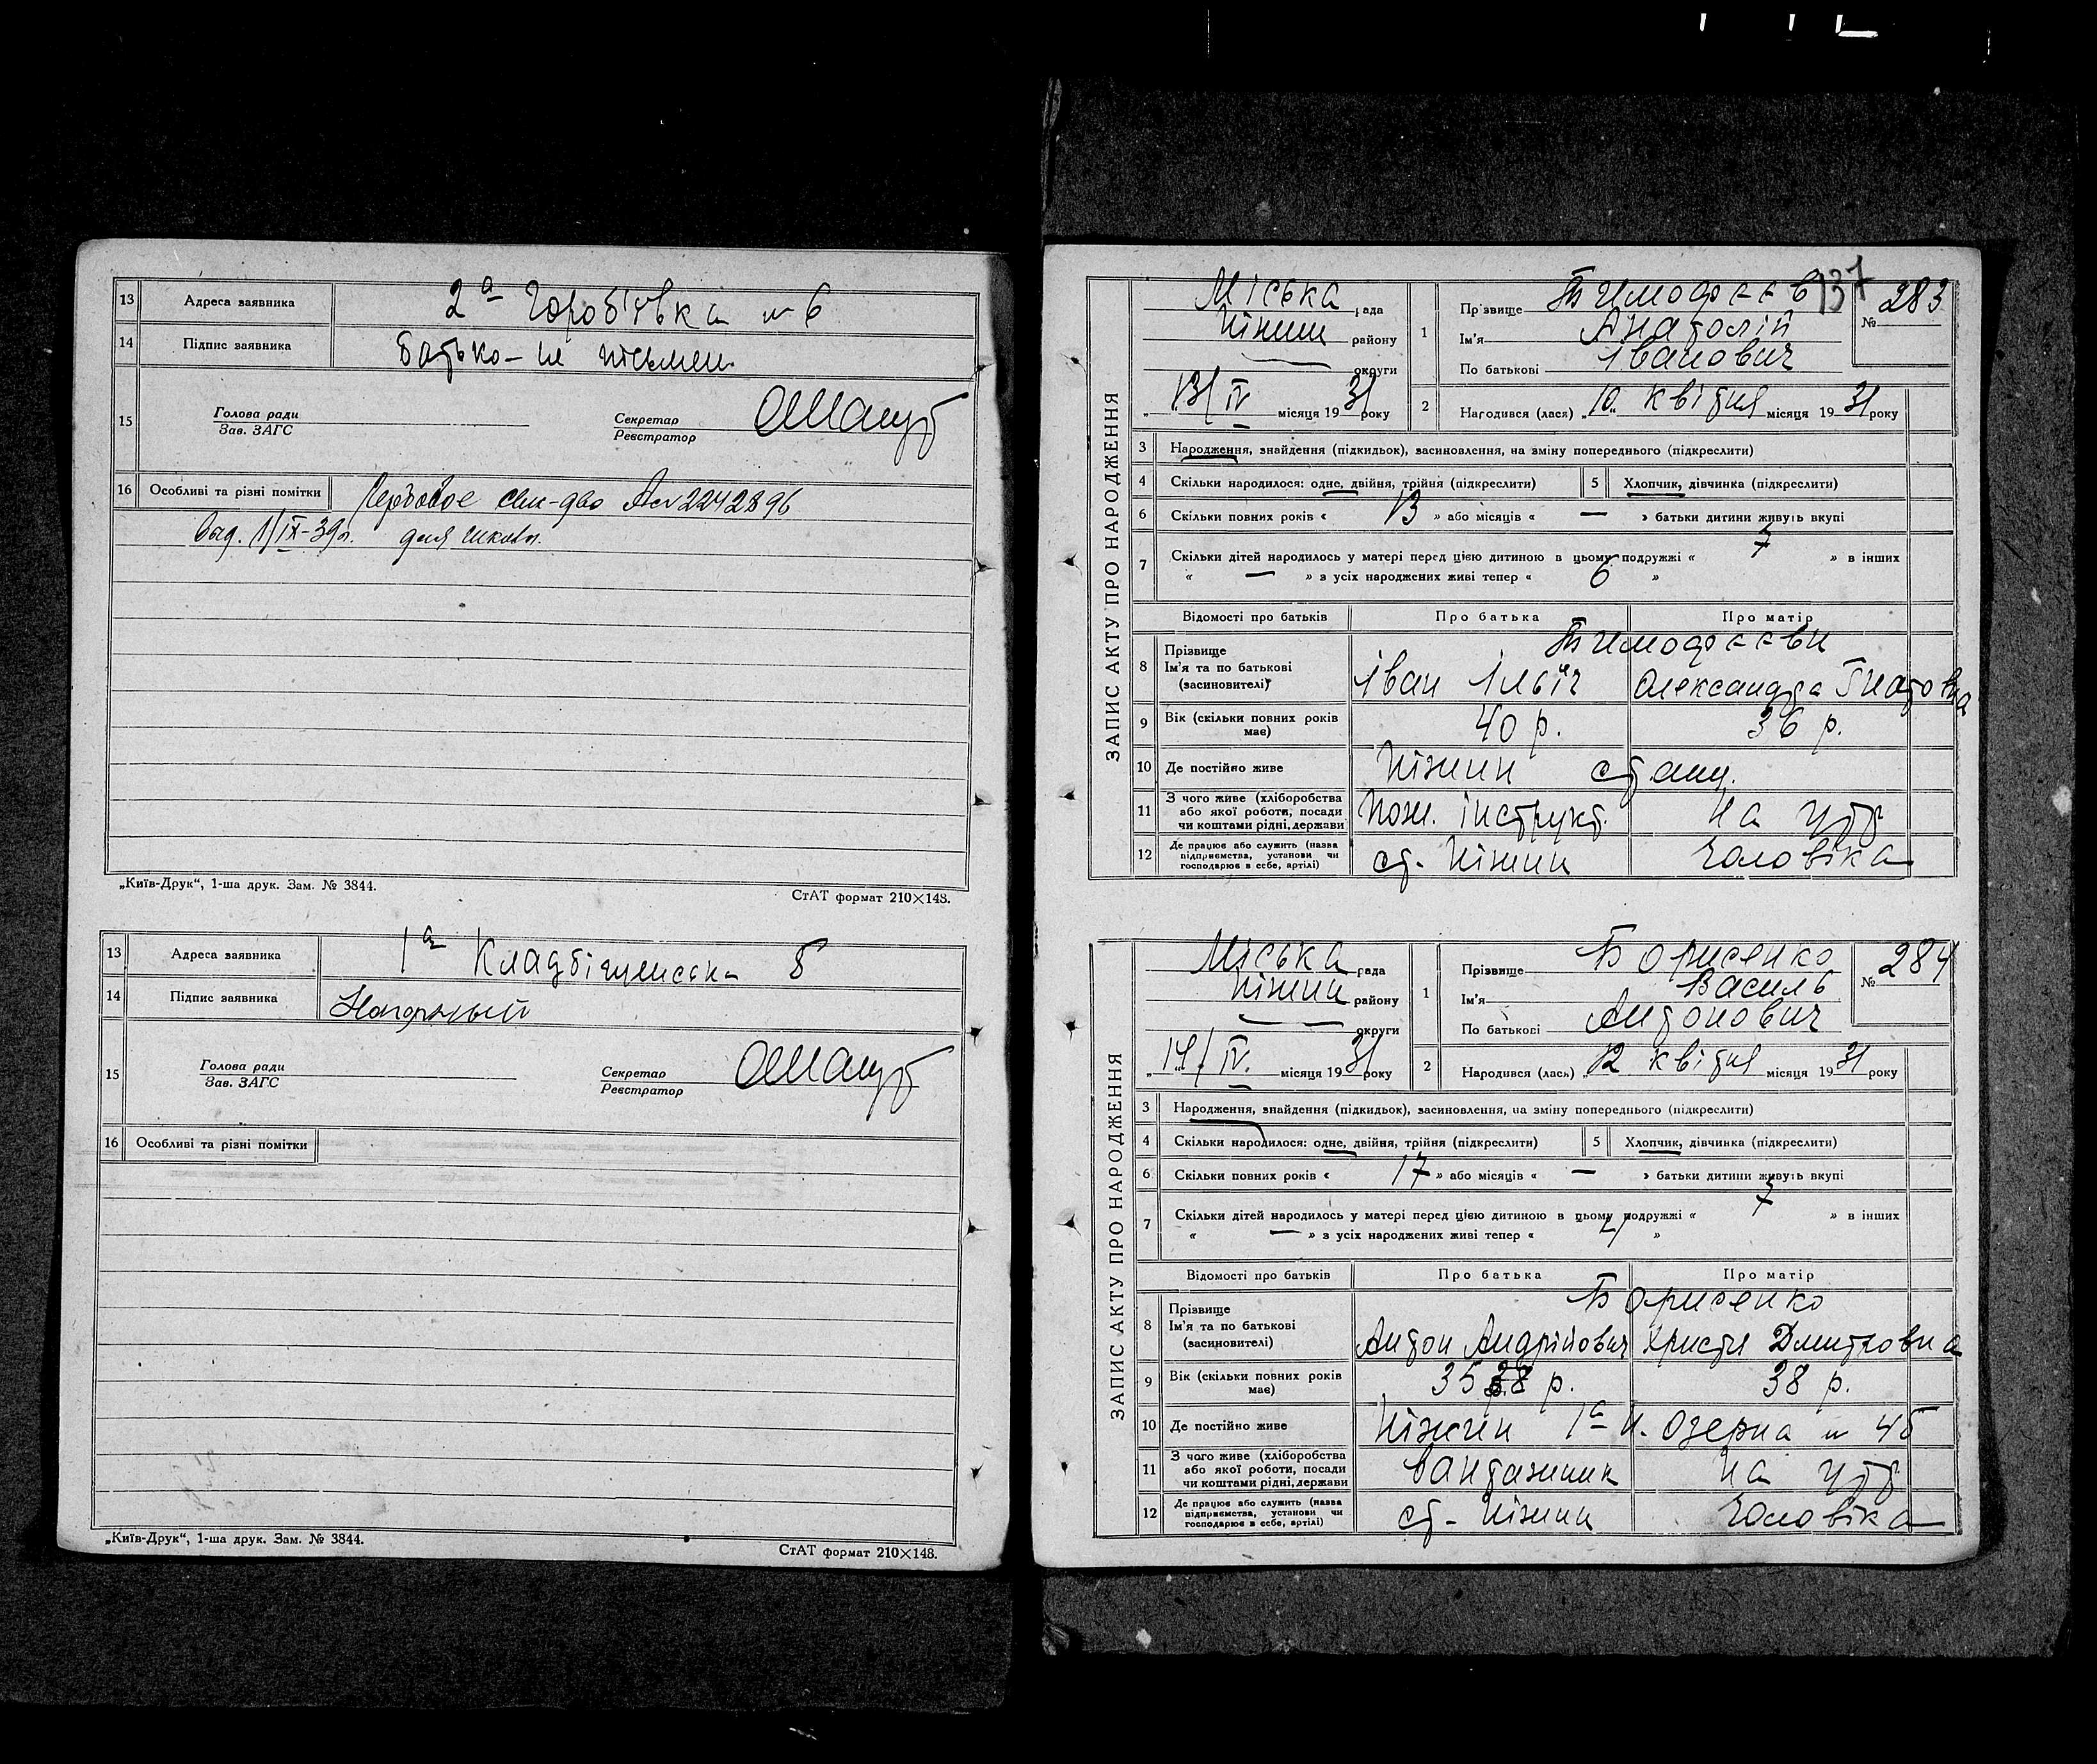 13 Адреса заявника 2а Горобівка № 6
14 Підпис заявника батько – не письмен.
15 Голова ради
Зав. ЗАГС
Секретар
Реєстратор
16 Особливі та різні помітки № 2242896
Выд. 1/IX-39 г. для школы.
„Київ-Друк“, 1-ша друк. Зам. № 3844.
СтАТ формат 210×148.
13 Адреса заявника 1а
14 Підпис заявника
15 Голова ради
Зав. ЗАГС
Секретар
Реєстратор
16 Особливі та різні помітки
„Київ-Друк“, 1-ша друк. Зам. № 3844.
СтАТ формат 210×148.
137
ЗАПИС АКТУ ПРО НАРОДЖЕННЯ
Міська рада
Ніжин району
округи
„13/IV місяця 1931 року
1 Прізвище Тимофєєв
№ 283
Ім'я Анатолій
По батькові Іванович
2 Народився (лася) „10“ квітня місяця 1931 року
3 Народження, знайдення (підкидьок), засиновлення, на зміну попереднього (підкреслити)
4 Скільки народилося: одне, двійня, трійня (підкреслити) 5 Хлопчик, дівчинка (підкреслити)
6 Скільки повних років « 13 » або місяців « — » батьки дитини живуть вкупі
7 Скільки дітей народилось у матері перед цією дитиною в цьому подружжі « 7 » в інших
« — » з усіх народжених живі тепер « 6 »
Відомості про батьків Про батька Про матір
Тимофєєви
8 Прізвище
Ім'я та по батькові
(засиновителі)
Іван Ілліч Олександра Гнатовна
9 Вік (скільки повних років має) 40 р. 36 р.
10 Де постійно живе Ніжин станц.
11 З чого живе (хліборобства або якої роботи, посади чи коштами рідні, держави Пож. інструкт. на утр
12 Де працює або служить (назва підприємства, установи чи господарює в себе, артілі) ст. Ніжин чоловіка
ЗАПИС АКТУ ПРО НАРОДЖЕННЯ
Міська рада
Ніжин району
округи
„14/IV. місяця 1931 року
1 Прізвище Борисенко
№ 284
Ім'я Василь
По батькові Антонович
2 Народився (лась) „12 квітня місяця 1931 року
3 Народження, знайдення (підкидьок), засиновлення, на зміну попереднього (підкреслити)
4 Скільки народилося: одне, двійня, трійня (підкреслити) 5 Хлопчик, дівчинка (підкреслити)
6 Скільки повних років « 17 » або місяців « — » батьки дитини живуть вкупі
7 Скільки дітей народилось у матері перед цією дитиною в цьому подружжі « 7 » в інших
« — » з усіх народжених живі тепер « »
Відомості про батьків Про батька Про матір
Борисенко
8 Прізвище
Ім'я та по батькові
(засиновителі)
Антон Андрійович Христя Дмитровна
9 Вік (скільки повних років має) 35 р. 38 р.
10 Де постійно живе Ніжин 1а Н. Озерна № 45
11 З чого живе (хліборобства або якої роботи, посади чи коштами рідні, держави вантажник на утр
12 Де працює або служить (назва підприємства, установи чи господарює в себе, артілі) ст. Ніжин чоловіка